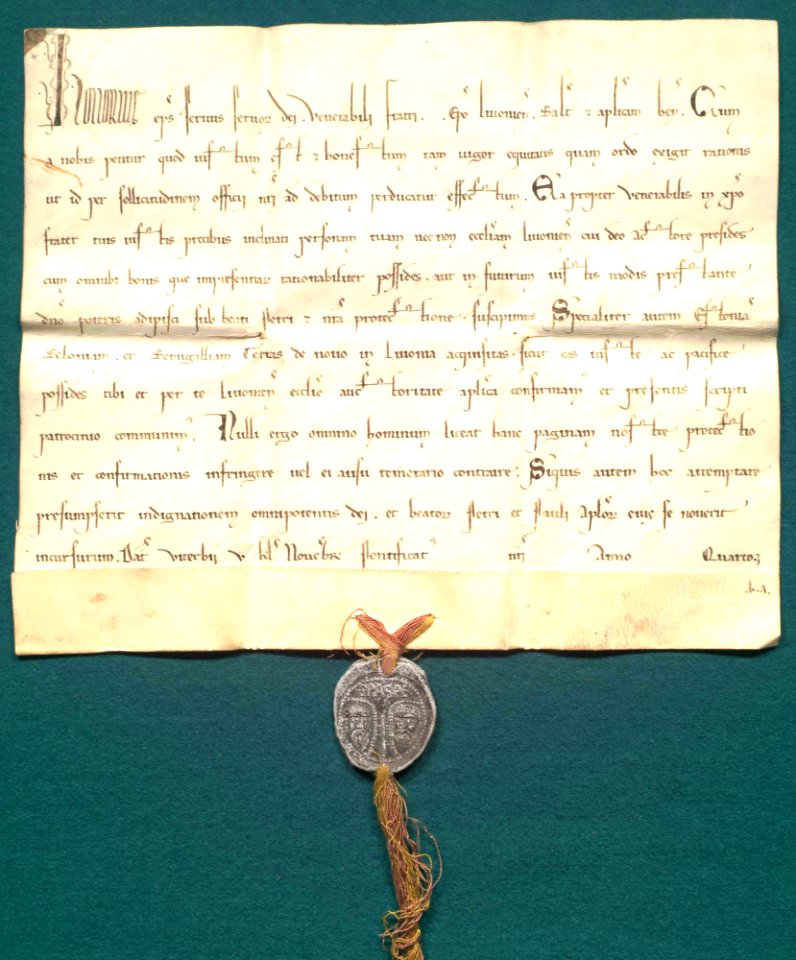 Honorius ep̄s seruus seruoꝝ dei . Venerabili fratri . . Ep̄o liuonien̄ . Salt̄ ⁊ aplicam ben̄ . Cum
a nobis petitur quod iustum est ⁊ honestum tam uigor equitatis quam ordo exigit rationis
ut id per sollicitudinem officii nr̄i ad debitum perducatur effectum . Ea propter venerabilis in xp̄o
frater tuis iustis precibus inclinati personam tuam necnon eccliam liuonien̄ cui deo actore presides
cum omnibꝫ bonis que inpresentiaꝝ rationabiliter possides . aut in futurum iustis modis prestante
dn̄o poteris adipisci sub beati Petri ⁊ nr̄a protectione suscipimus . Specialiter autem Estoniā
Seloniam . et Semigalliam Terras de nouo in liuonia acquisitas . sicut eas iuste ac pacifice
possides tibi et per te liuonien̄ ecclie auctoritate aplica confirmam̄ et presentis scripti
patrocinio communim̄ . Nulli ergo omnino hominum liceat hanc paginam nostre protectio
nis et confirmationis infringere uel ei ausu temerario contraire . Siquis autem hoc attemptare
presumpserit indignationem omnipotentis dei . et beatoꝝ Petri et Pauli Aploꝝ eius se nouerit
incursurum . Dat̄ viterbii v kl̄ Nouēbr̄ Pontificat̄ nr̄i Anno Quarto
.b.a.
SPASPE